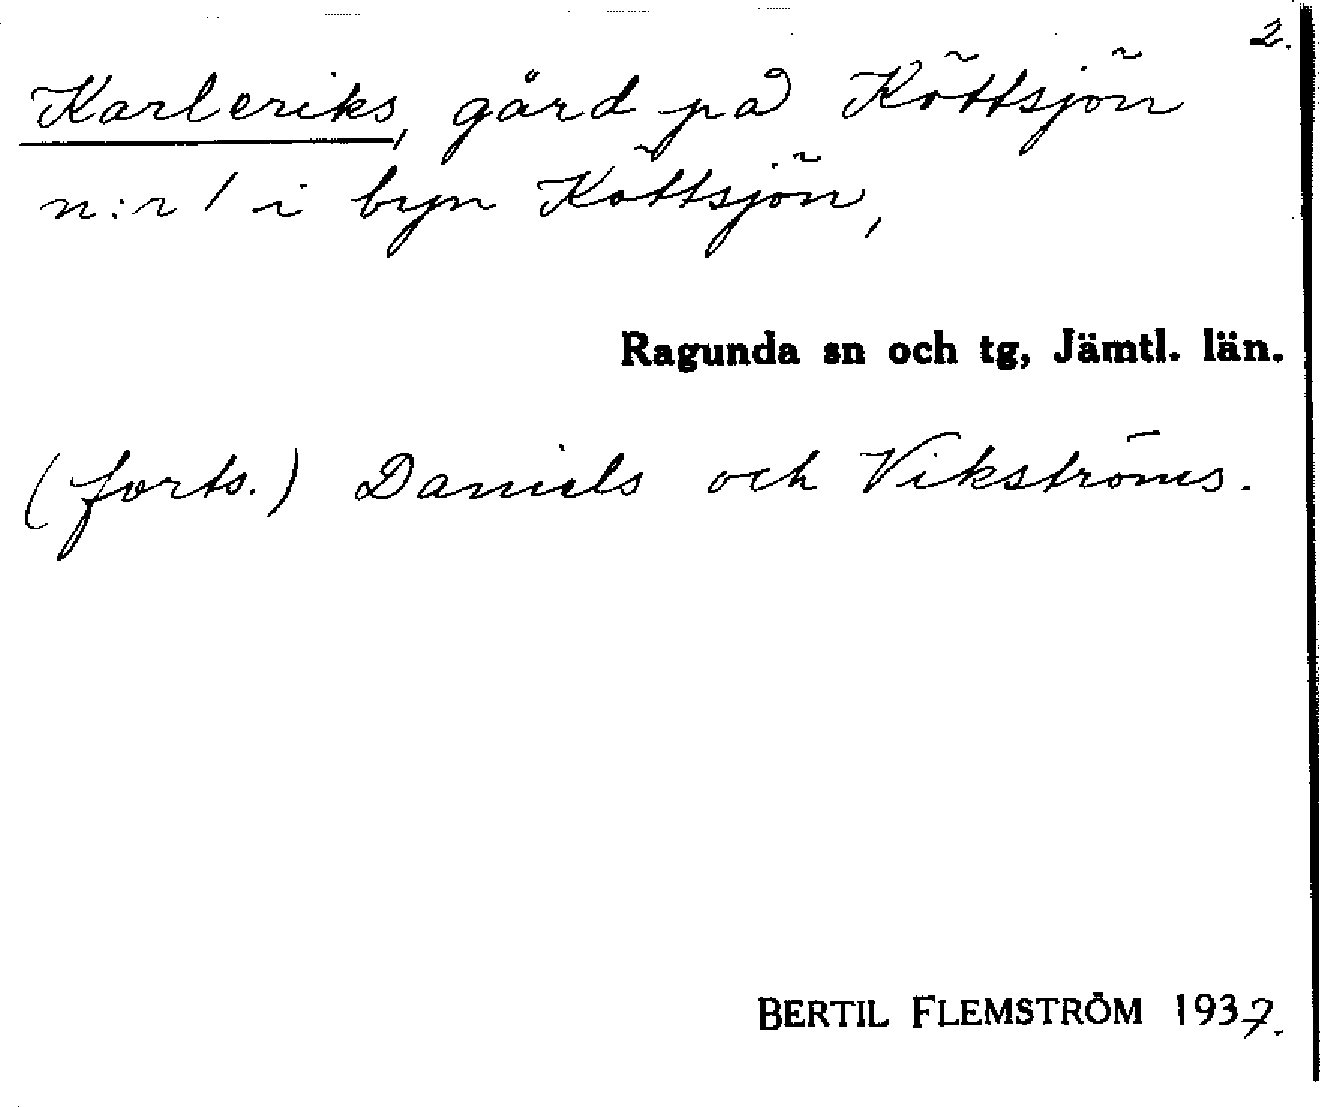 2.
Karleriks, gård på Köttsjön
n:r 1 i byn Köttsjön,
Ragunda sn och tg, Jämtl. län.
(forts.) Daniels och Vikströms.
BERTIL FLEMSTRÖM 1937.